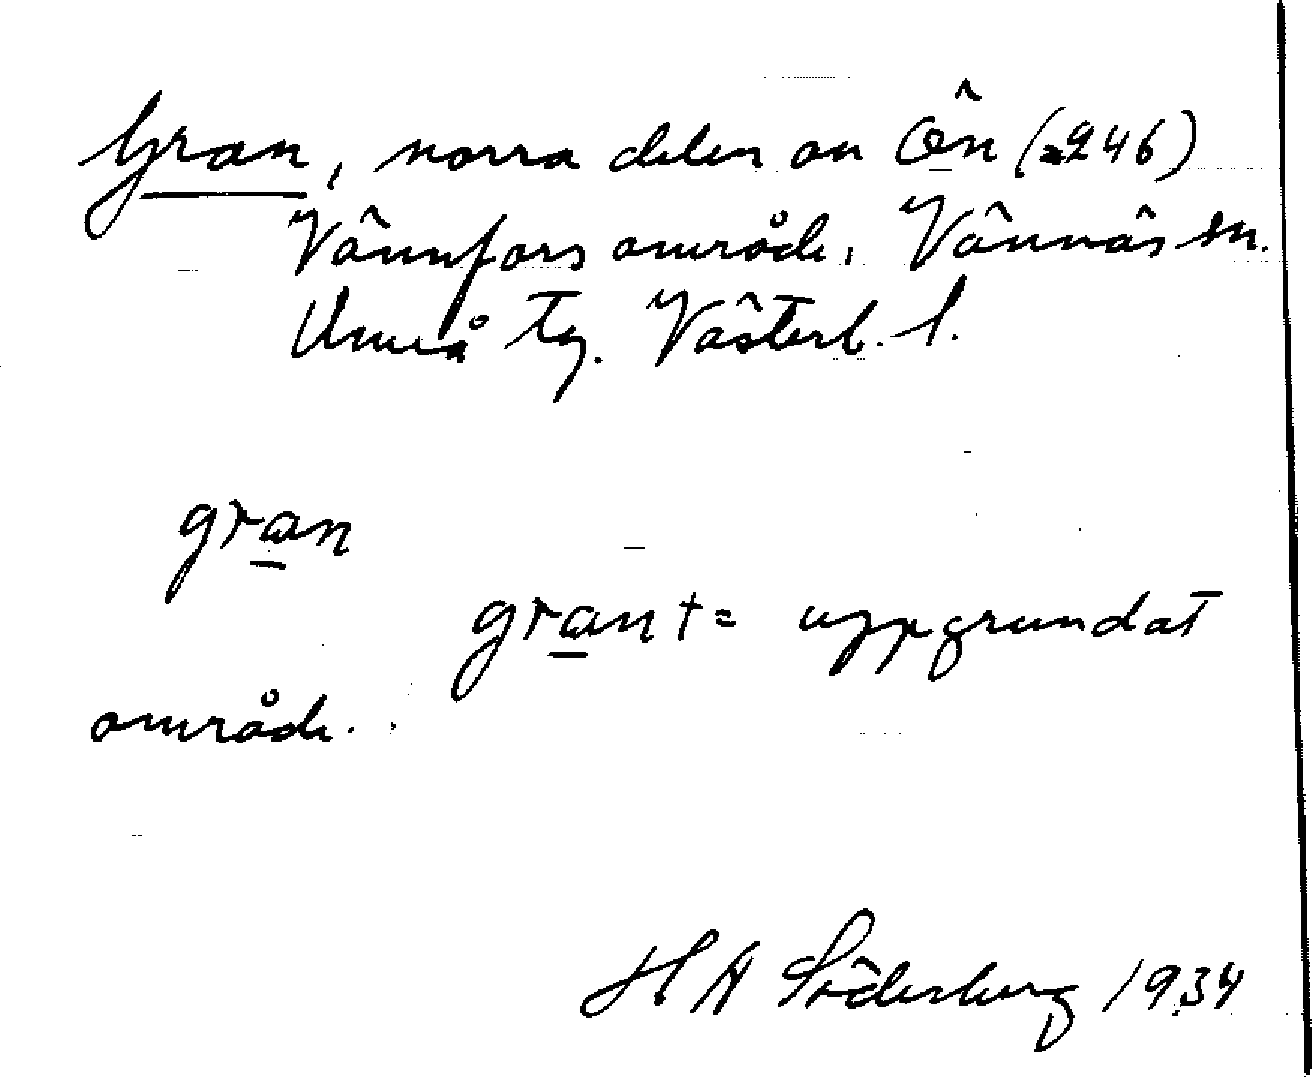 Gran, norra delen av Ön (=246)
Vännfors område, Vännäs sn.
Umeå tg. Västerb. l.
gran
grant = uppgrundat
område.
H A Söderberg 1934